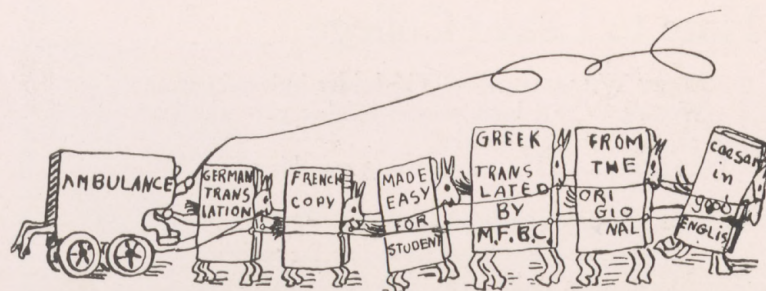 AMBULANCE
GERMAN
TRANS
LATION
FRENCH
COPY
MADE
EASY
FOR
STUDENT
GREEK
TRANS
LATED
BY
M.F.B.C.
FROM
THE
ORI
GIO
NAL
CAESAR
in
good
ENGLIS